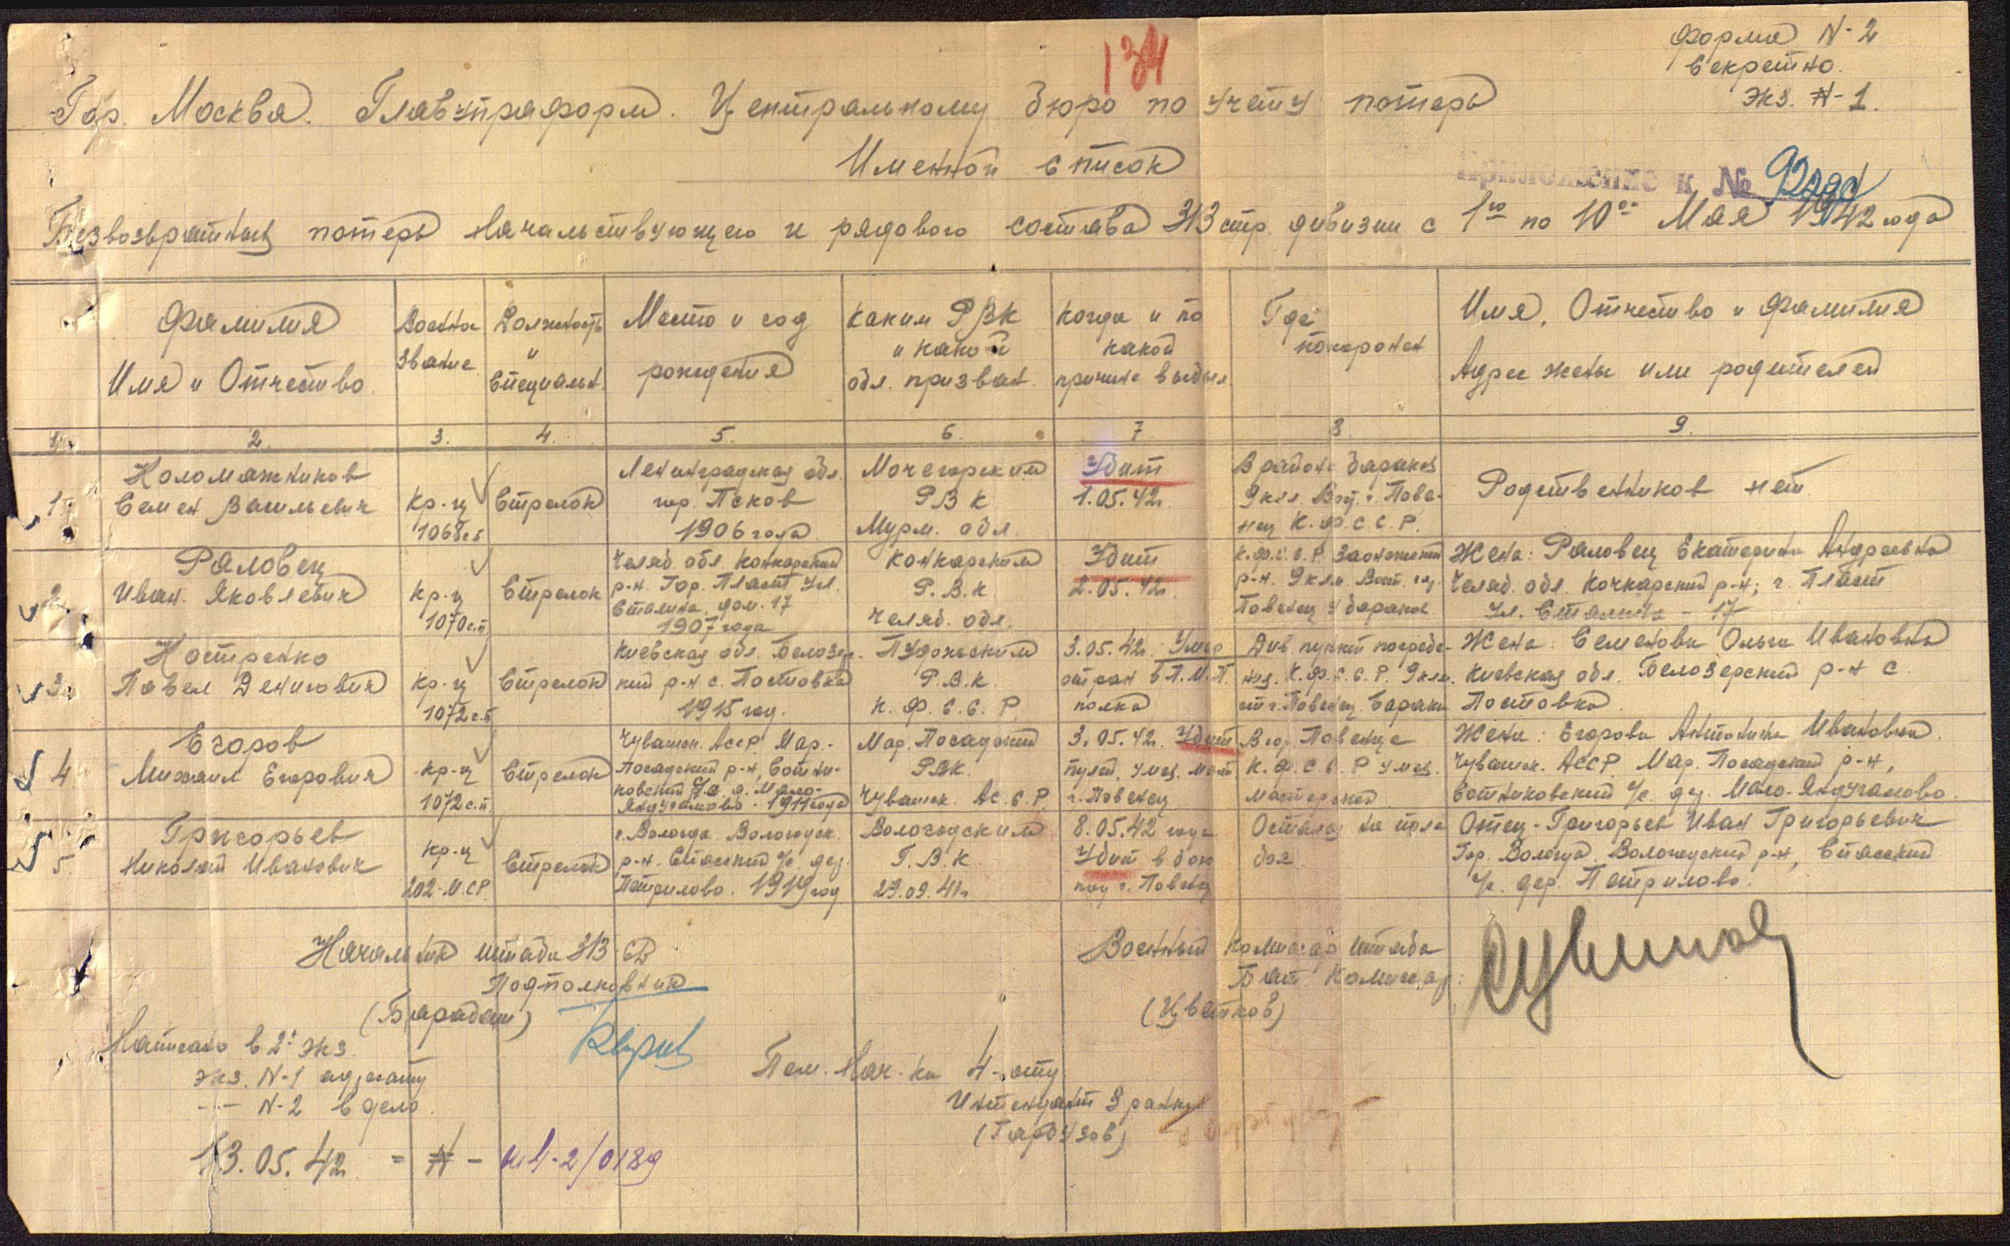 134
Форма N-2
Секретно.
Экз. N-1.
Гор. Москва. Главупраформ. Центральному бюро по учету потерь
Именной список
Приложение к №
Безвозвратных потерь начальствующего и рядового состава 313 стр. дивизии с 1го по 10ое Мая 1942 года
Фамилия Имя и Отчество.
Военно звание
Должность и специальн.
Место и год рождения
Каким РВК и какой обл. призван.
Когда и по какой причине выбыл
Где похоронен
Имя, Отчество и Фамилия
Адрес жены или родителей
1. 2. 3. 4. 5. 6. 7 8. 9.
1.
Коломажников
Семен Васильевич
Кр-ц
1068 с.п
Стрелок
Ленинградская обл.
гор. Псков
1906 года
Мончегорским
РВК
Мурм. обл.
Убит
1.05.42г.
В районе барака
9 кл. Вост. г. Пове-
нец К.Ф.С.С.Р.
Родственников нет
2.
Раловец
Иван Яковлевич
Кр-ц
1070 с.п
Стрелок
Челяб. обл. Кочкарский
р-н. Гор. Пласт Ул.
Сталина, дом. 17
1907 года
Кочкарским
Р.В.К.
Челяб. обл.
Убит
2.05.42г.
К.Ф.С.С.Р. Заонежский
р-н. 9 кл. Вост. г.
Повенец у барака
Жена: Раловец Екатерина Андреевна
Челяб. обл. Кочкарский р-н; г. Пласт
Ул. Сталина - 17
3.
Костренко
Павел Денисович
Кр-ц
1072 с.п
Стрелок
Киевская обл. Белозер-
кий р-н с. Постовка
1915 год.
Пудожским
Р.В.К.
К.Ф.С.С.Р.
3.05.42г. Умер
от ран в П.М.П.
полка
Див. пункт погребе-
ния. К.Ф.С.С.Р. 9 кл.
ст г. Повенец. Бараки
Жена: Семенова Ольга Ивановна
Киевская обл. Белозерский р-н с.
Постовка.
4
Егоров
Михаил Егорович
Кр-ц
1072 с.п.
Стрелок
Чувашск. АССР. Мар.-
Посадский р-н, Сотни-
ковский с/с, д. Мало-
Яндуганово - 1911 года
Мар. Посадский
РВК
Чувашск. Ас.С.Р.
3.05.42г. Убит
г. Повенец
В гор. Повенце
К.Ф.С.С.Р у мех.
мастерской
Жена: Егорова Антонина Ивановна.
Чувашск. АССР. Мар. Посадский р-н,
Сотниковский с/с. д. Мало-Яндуганово.
5.
Григорьев
Николай Иванович
Кр-ц
202-МСР.
Стрелок
г. Вологда. Вологодск.
р-н. Спасский с/с. дер.
Петрилово. 1919 год
Вологодским
Г.В.К.
29.09.41г.
8.05.42 года
Убит в бою
под г. Повенец
Остался на поле
боя.
Отец - Григорьев Иван Григорьевич
Гор. Вологда. Вологодский р-н, Спасский
с/с. дер. Петрилово.
Начальник штаба 313 СД
Подполковник
Военный Комиссар штаба
Бат. Комиссар:
(Цветков)
Написано в 2х экз.
экз. N-1 адресату
-"- N-2 в дело.
Пом. Нач-ка 4-отд
Интендант 3 ранга
(Гарбузов)
13.05.42г. = N -